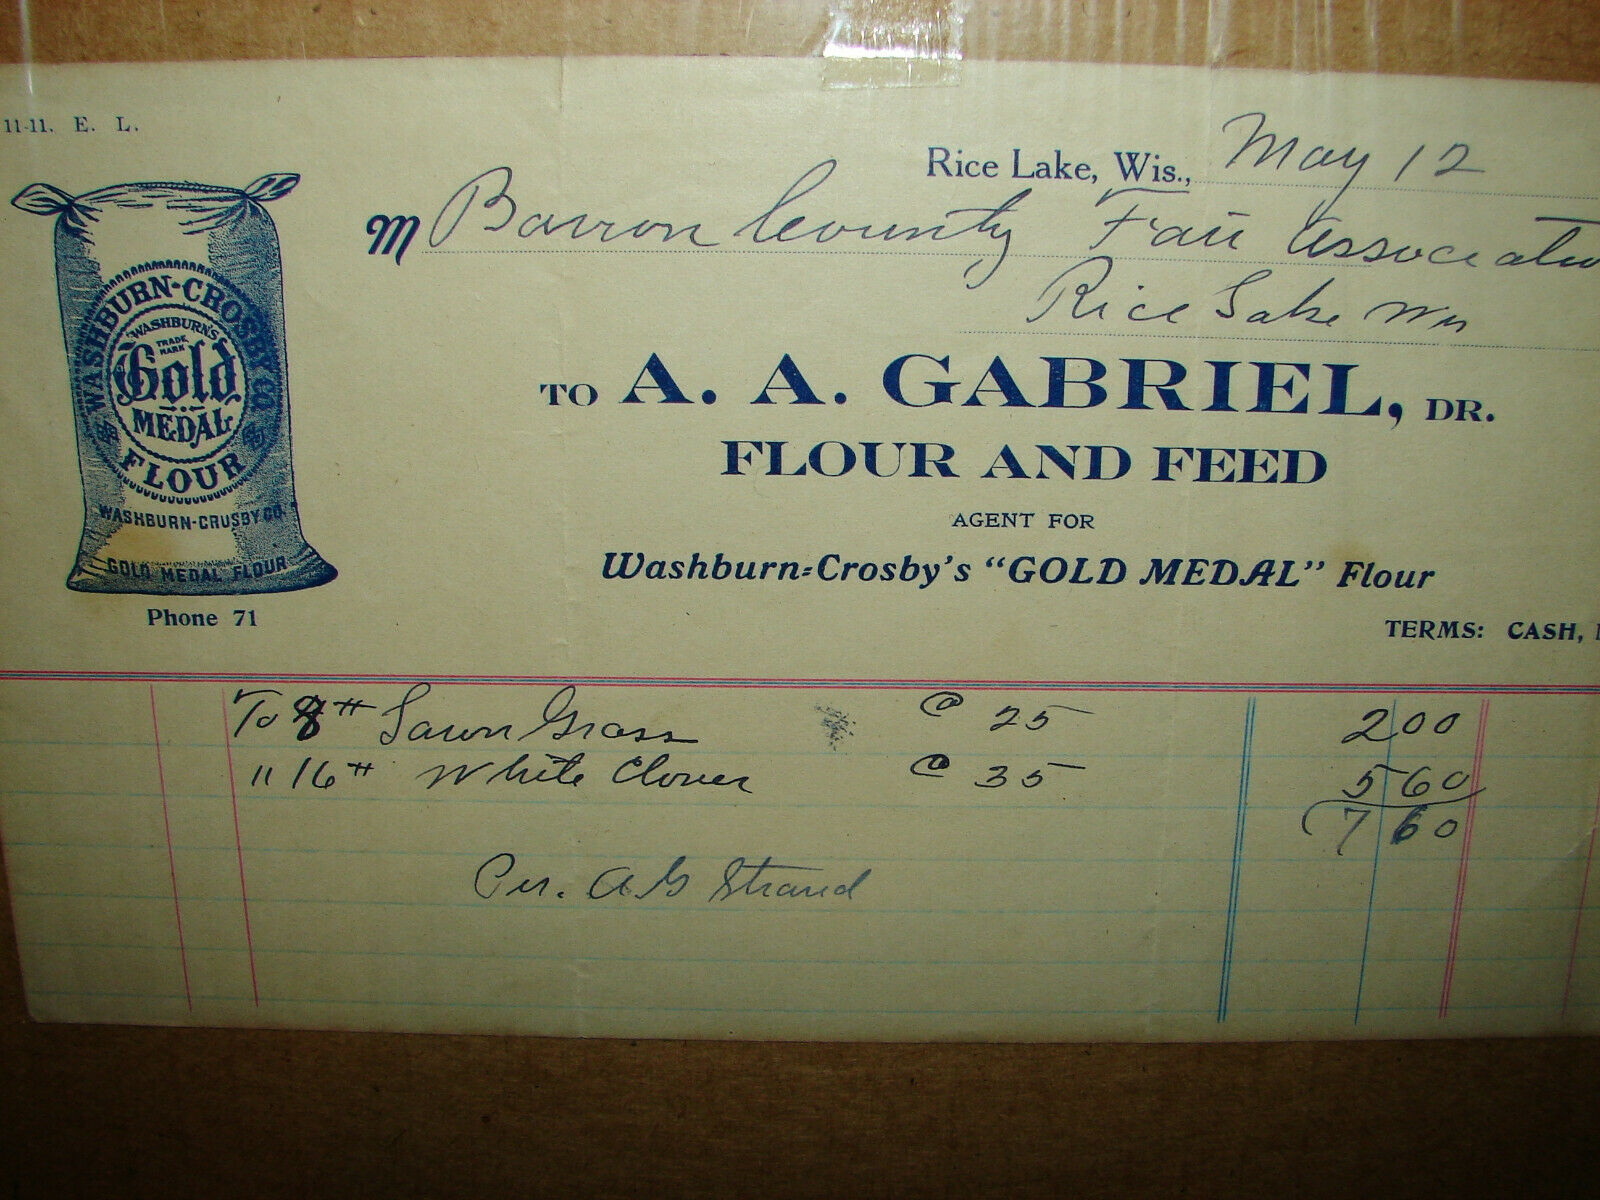 11-11. E. L.
Rice Lake, Wis., May 12
M Barron County Fair Associatio
Rice Lake Wis
WASHBURN-CROSBY CO.
WASHBURN'S
TRADE MARK
Gold
MEDAL
FLOUR
WASHBURN-CRUSBY CO.
GOLD MEDAL FLOUR
Phone 71
TO A. A. GABRIEL, DR.
FLOUR AND FEED
AGENT FOR
Washburn-Crosby's "GOLD MEDAL" Flour
TERMS: CASH,
To 8 # Lawn Grass @ 25 2 00
" 16 # White Clover @ 35 5 60
7 60
Per. A G Strand